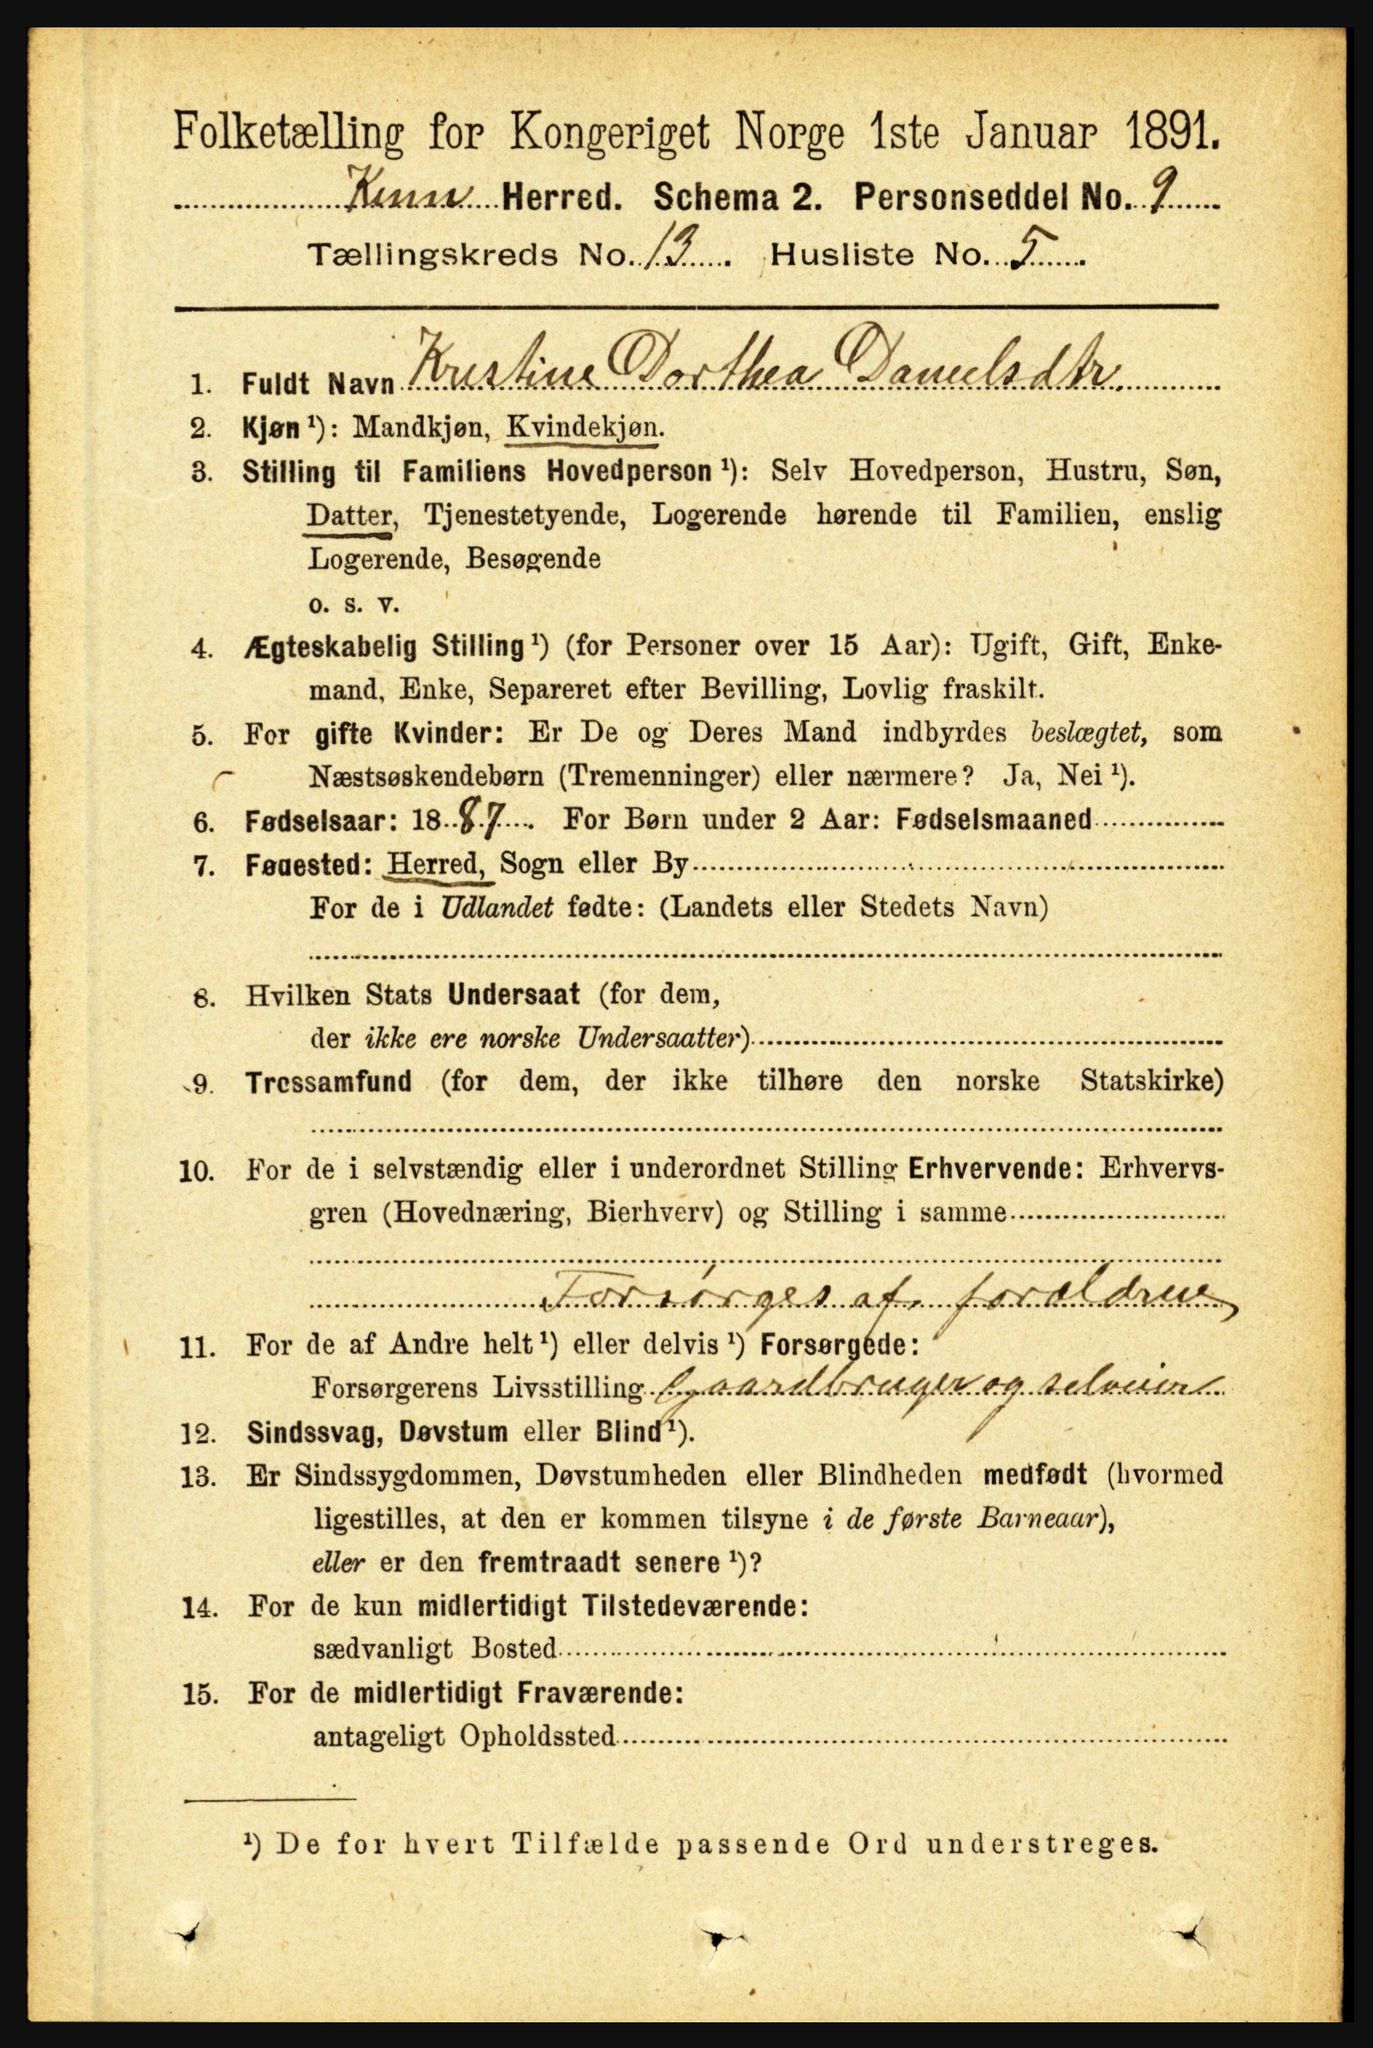 Folketælling for Kongeriget Norge 1ste Januar 1891.
Kinn Herred. Schema 2. Personseddel No. 9
Tællingskreds No. 13. Husliste No. 5
1. Fuldt Navn Kristine Dorthea Danielsdtr.
2. Kjøn¹): Mandkjøn, Kvindekjøn.
3. Stilling til Familiens Hovedperson¹): Selv Hovedperson, Hustru, Søn,
Datter, Tjenestetyende, Logerende hørende til Familien, enslig
Logerende, Besøgende
o. s. v.
4. Ægteskabelig Stilling¹) (for Personer over 15 Aar): Ugift, Gift, Enke-
mand, Enke, Separeret efter Bevilling, Lovlig fraskilt.
5. For gifte Kvinder: Er De og Deres Mand indbyrdes beslægtet, som
Næstsøskendebørn (Tremenninger) eller nærmere? Ja, Nei¹).
6. Fødselsaar: 1887. For Børn under 2 Aar: Fødselsmaaned
7. Fødested: Herred, Sogn eller By
For de i Udlandet fødte: (Landets eller Stedets Navn)
8. Hvilken Stats Undersaat (for dem,
der ikke ere norske Undersaatter)
9. Trossamfund (for dem, der ikke tilhøre den norske Statskirke)
10. For de i selvstændig eller i underordnet Stilling Erhvervende: Erhvervs-
gren (Hovednæring, Bierhverv) og Stilling i samme
Forsørges af forældrene
11. For de af Andre helt¹) eller delvis¹) Forsørgede:
Forsørgerens Livsstilling Gaardbruger og selveier
12. Sindssvag, Døvstum eller Blind¹).
13. Er Sindssygdommen, Døvstumheden eller Blindheden medfødt (hvormed
ligestilles, at den er kommen tilsyne i de første Barneaar),
eller er den fremtraadt senere¹)?
14. For de kun midlertidigt Tilstedeværende:
sædvanligt Bosted
15. For de midlertidigt Fraværende:
antageligt Opholdssted
¹) De for hvert Tilfælde passende Ord understreges.